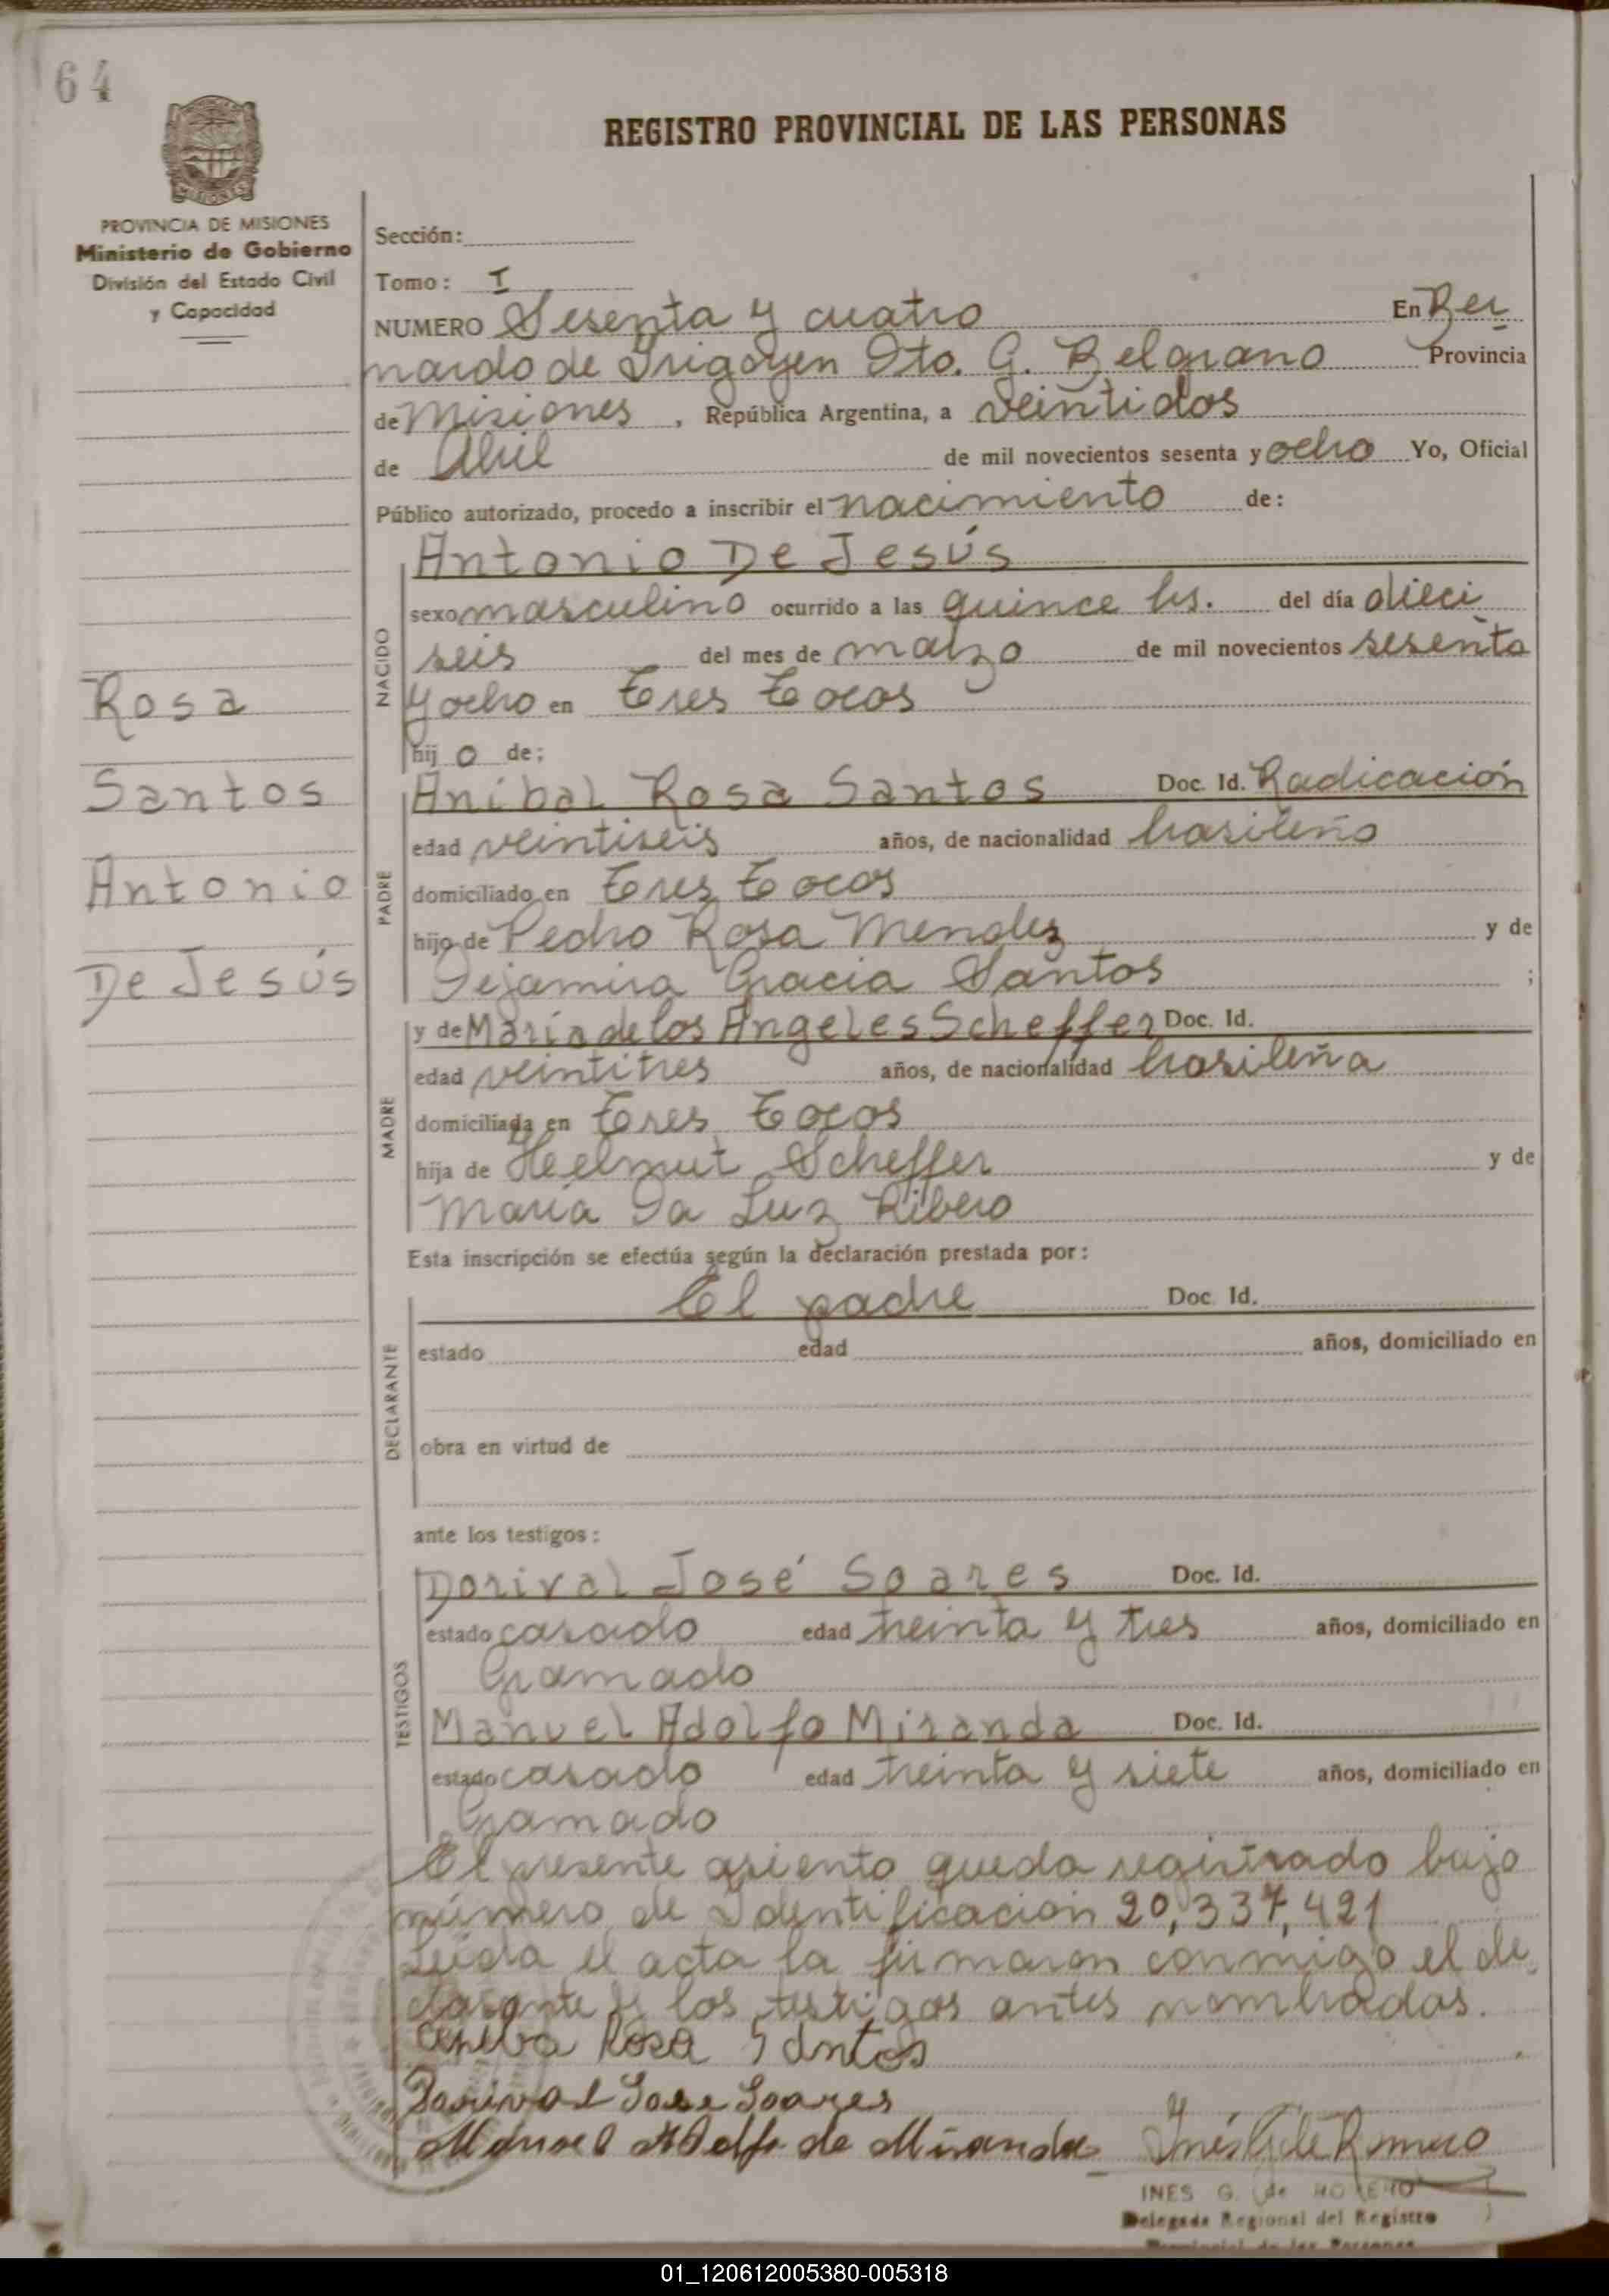 64
REGISTRO PROVINCIAL DE LAS PERSONAS
MISIONES
PROVINCIA DE MISIONES
Ministerio de Gobierno
División del Estado Civil
y Capacidad
Sección:
Tomo: I
NUMERO Sesenta y cuatro En Ber
nardo de Irigoyen Dto. G. Belgrano Provincia
de Misiones, República Argentina, a veintidos
de Abril de mil novecientos sesenta y ocho Yo, Oficial
Público autorizado, procedo a inscribir el nacimiento de:
Antonio De Jesús
sexo masculino ocurrido a las quince hs. del día dieci
seis del mes de marzo de mil novecientos sesenta
y ocho en Tres Tocos
hij o de:
NACIDO
Rosa
Santos
Antonio
De Jesús
Aníbal Rosa Santos Doc. Id. Radicación
edad veintiseis años, de nacionalidad brasileño
domiciliado en Tres Tocos
hijo de Pedro Rosa Mendez y de
Dejamira Gracia Santos ;
PADRE
y de María de los Angeles Scheffer Doc. Id.
edad veintitres años, de nacionalidad brasileña
domiciliada en Tres Tocos
hija de Heelmut Scheffer y de
María Da Luz Ribero
MADRE
Esta inscripción se efectúa según la declaración prestada por:
El padre Doc. Id.
estado edad años, domiciliado en
obra en virtud de
DECLARANTE
ante los testigos:
Dorival José Soares Doc. Id.
estado casado edad treinta y tres años, domiciliado en
Gramado
Manuel Adolfo Miranda Doc. Id.
estado casado edad treinta y siete años, domiciliado en
Gramado
TESTIGOS
El presente asiento queda registrado bajo
número de Identificación 20,337,421
Leída el acta la firmaron conmigo el de
clarante y los testigos antes nombrados.
Rosa Santos
Dorival Jose Soares
Manoel Adolfo de Miranda
Inés G de Romero
INES G. de
Delegada Regional del Registro
Provincial de las Personas
01_120612005380-005318